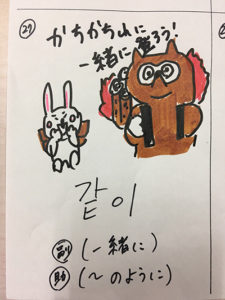 ㉗
かちかち山に
一緒に登ろう!
같이
副 (一緒に)
助 (〜のように)